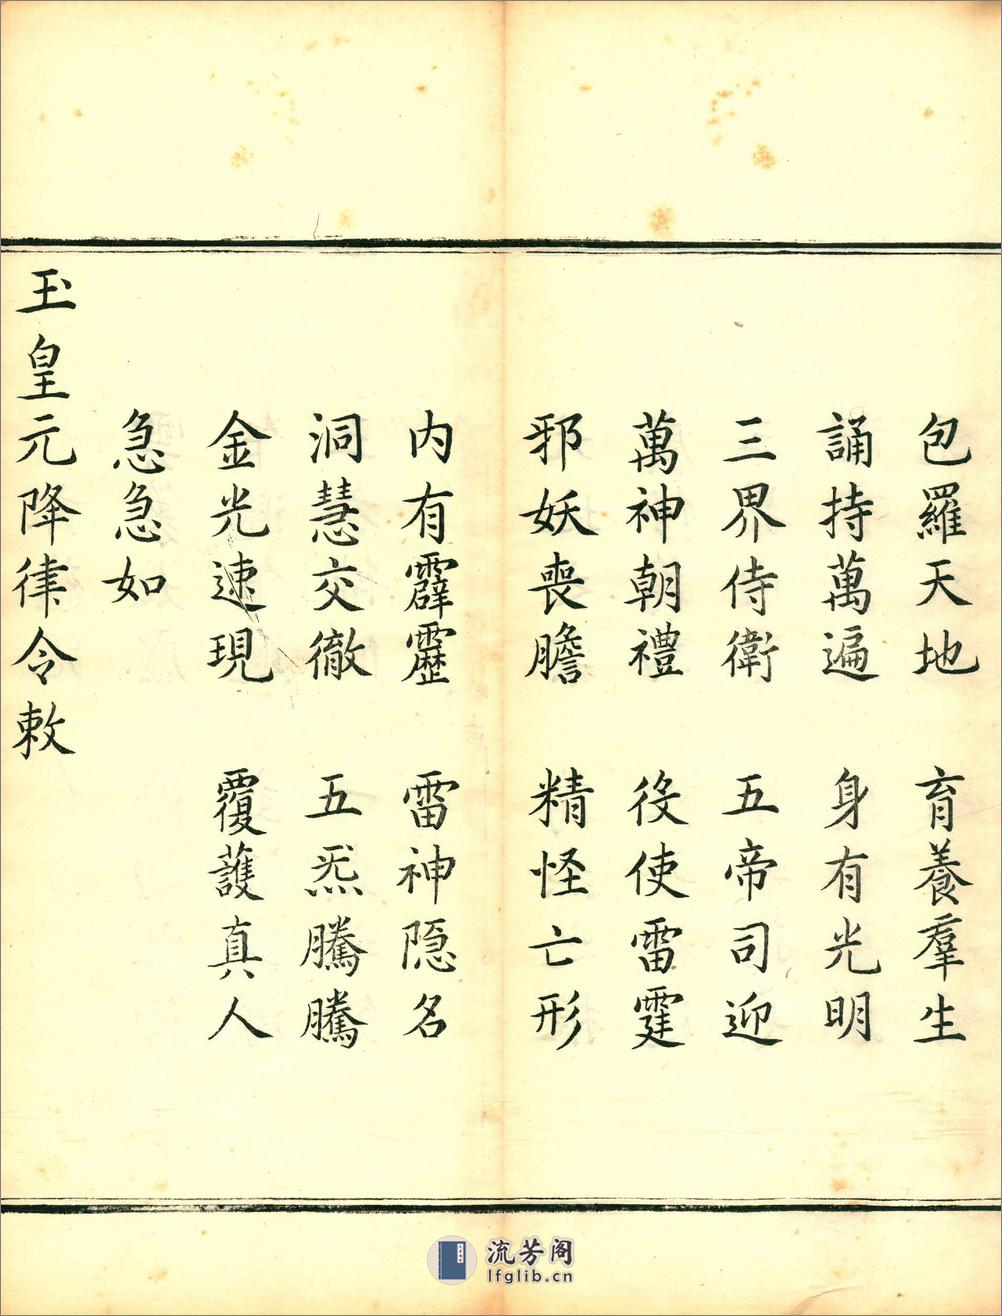 包羅天地　育養羣生
誦持萬遍　身有光明
三界侍衛　五帝司迎
萬神朝禮　役使雷霆
邪妖喪膽　精怪亡形
内有霹靂　雷神隐名
洞慧交徹　五炁騰騰
金光速現　覆護真人
急急如
玉皇元降律令敕
流芳阁
lfglib.cn